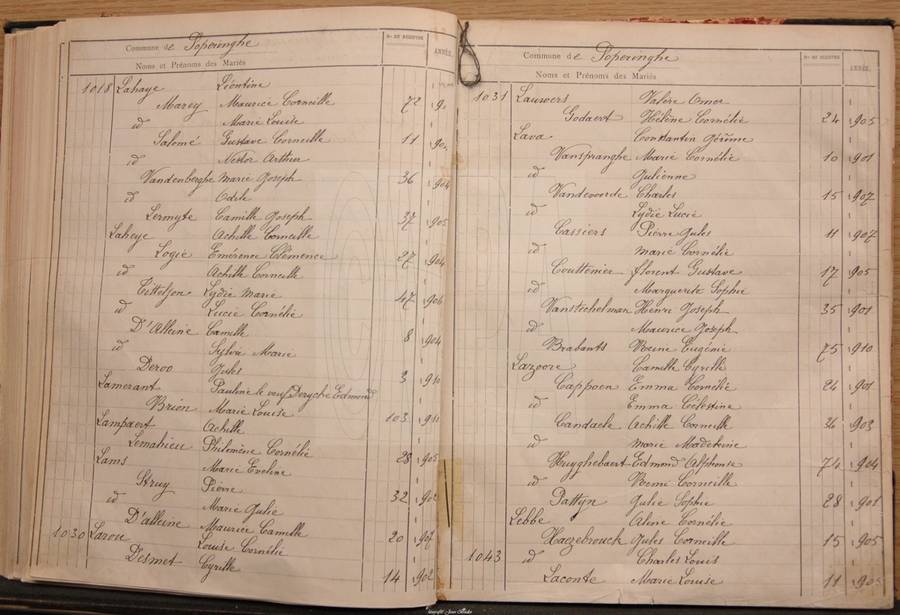 Commune de Poperinghe
Nos DE REGISTRE
ANNÉE
Noms et Prénoms des Mariés
1018 Lahaye Léontine
Marey Maurice Corneille 72
id Marie Louise
Salomé Gustave Corneille 11
id Nestor Arthur
Vandenberghe Marie Joseph 36 904
id Odile
Lermyte Camille Joseph 37 905
Laheye Achille Corneille
Logie Emérence Clémence 27 904
id Achille Corneille
Titteljon Lydie Marie 47 906
id Lucie Cornélie
D'Alleine Camille 8 904
id Sylvie Marie
Deroo Jules 3 910
Lamerant Pauline le veuf Deryche Edmond
Brion Marie Louise 103 911
Lampaert Achille
Lemahieu Philomène Cornélie 28 905
Lams Marie Eveline
Struy Pierre 32 902
id Marie Julie
D'alleine Maurice Camille 20 907
1030 Larou Louise Cornélie
Desmet Cyrille 14 902
Commune de Poperinghe
Nos DE REGISTRE
ANNÉE
Noms et Prénoms des Mariés
1031 Lauwers Valère Omer
Godaert Hélène Cornélie 24 905
Lava Constantin Gérôme
Vanspranghe Marie Cornélie 10 901
id Julienne
Vandevoorde Charles 15 907
id Lydie Lucie
Cassiers Pierre Jules 11 907
id Marie Cornélie
Couttenier florent Gustave 17 905
id Marguerite Sophie
Vanstechelman Henri Joseph 35 901
id Maurice Joseph
Brabants Noeme Eugénie 75 910
Lazoore Camille Cyrille
Cappoen Emma Cornélie 24 901
id Emma Célestine
Candaele Achille Corneille 36 903
id Marie Madeleine
Huyghebaert Edmond Alphonse 74 904
id Noemi Corneille
Pattyn Julie Sophie 28 901
Lebbe Aline Cornélie
Hazebrouck Jules Corneille 15 905
1043 id Charles Louis
Laconte Marie Louise 11 905